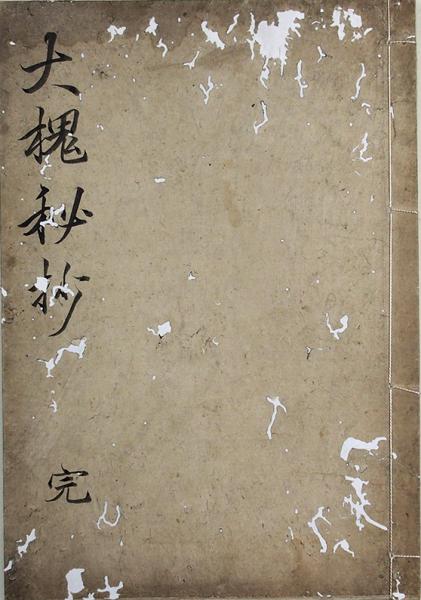 大槐秘抄
完